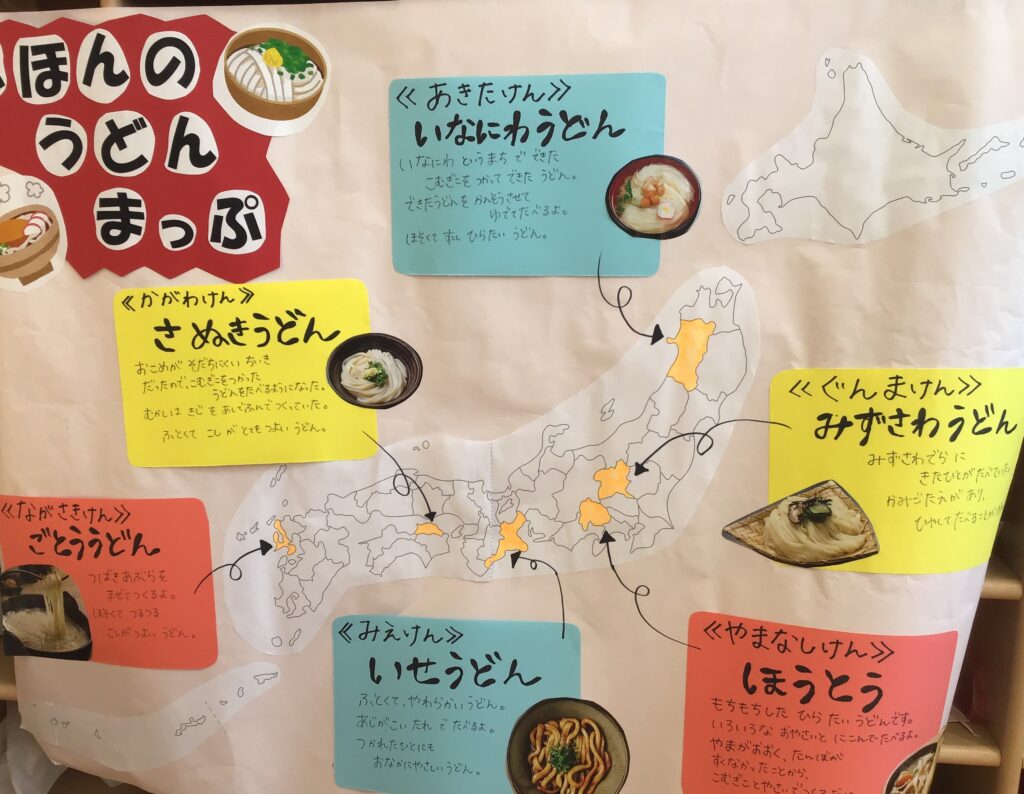 ほんの
うどん
まっぷ
≪あきたけん≫
いなにわうどん
いなにわ というまち で できた
こむぎこを つかって できた うどん。
できたうどんを かんそうさせて
ゆでてたべるよ。
ほそくて すこし ひらたい うどん。
≪かがわけん≫
さぬきうどん
おこめが そだちにくい ちいき
だったので、こむぎこをつかった
うどんをたべるようになった。
むかしは きじ を あしでふんで つくっていた。
ふとくて こし が とても つよい うどん。
≪ぐんまけん≫
みずさわうどん
みずさわでら に
きたひとが たべていた
かみごたえが あり、
ひやして たべることが
≪ながさきけん≫
ごとううどん
つばきあぶらを
まぜてつくるよ。
ほそくて つるつる
こしが つよい うどん。
≪みえけん≫
いせうどん
ふとくて、やわらかいうどん。
あじがこい たれ で たべるよ。
つかれたひとにも
おなかにやさしいうどん。
≪やまなしけん≫
ほうとう
もちもちした ひらたいうどんです。
いろいろな おやさいと にこんでたべるよ。
やまがおおく、たんぼが
すくなかったことから、
こむぎことやさいで